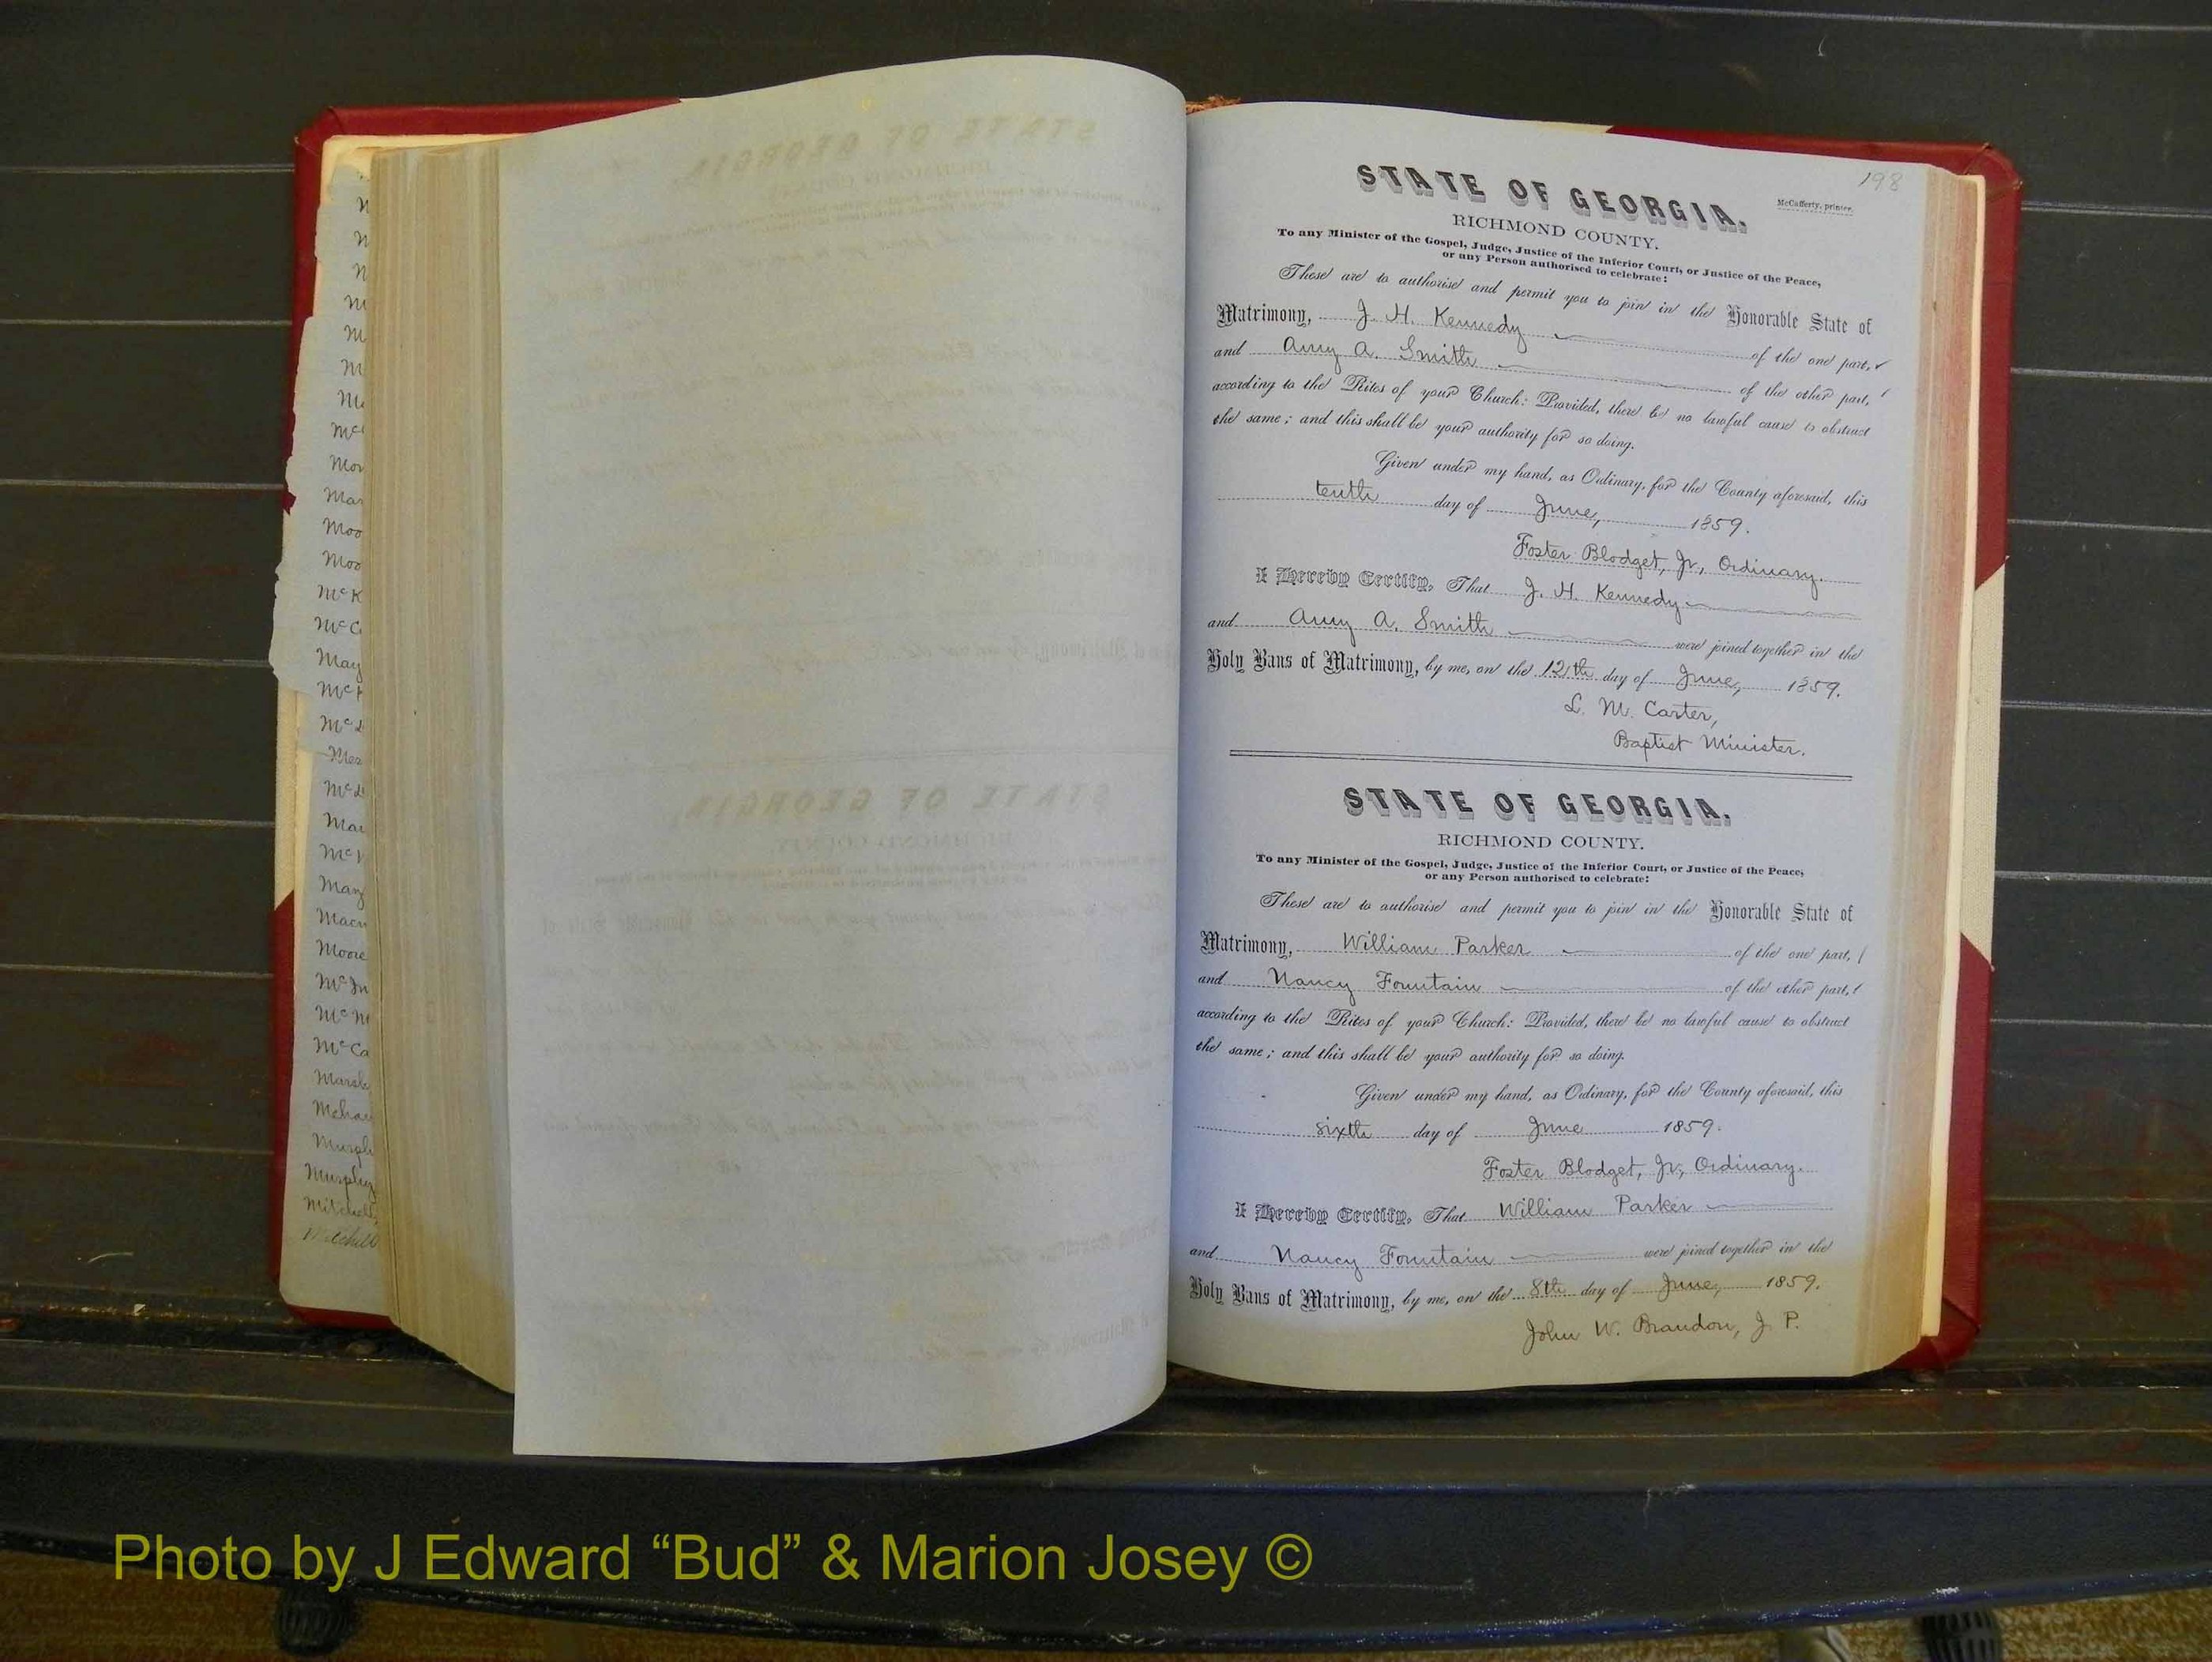 198
STATE OF GEORGIA.
McCafferty, printer.
RICHMOND COUNTY.
To any Minister of the Gospel, Judge, Justice of the Inferior Court, or Justice of the Peace,
or any Person authorised to celebrate:
These are to authorise and permit you to join in the Honorable State of
Matrimony, J. H. Kennedy of the one part,
and Amy A. Smith of the other part,
according to the Rites of your Church: Provided, there be no lawful cause to obstruct
the same; and this shall be your authority for so doing.
Given under my hand, as Ordinary, for the County aforesaid, this
tenth day of June, 1859.
Foster Blodget, Jr., Ordinary.
I Hereby Certify, That J. H. Kennedy
and Amy A. Smith were joined together in the
Holy Bans of Matrimony, by me, on the 12th day of June, 1859.
L. M. Carter,
Baptist Minister.
STATE OF GEORGIA.
RICHMOND COUNTY.
To any Minister of the Gospel, Judge, Justice of the Inferior Court, or Justice of the Peace,
or any Person authorised to celebrate:
These are to authorise and permit you to join in the Honorable State of
Matrimony, William Parker of the one part,
and Nancy Fountain of the other part,
according to the Rites of your Church: Provided, there be no lawful cause to obstruct
the same; and this shall be your authority for so doing.
Given under my hand, as Ordinary, for the County aforesaid, this
sixth day of June 1859.
Foster Blodget, Jr., Ordinary.
I Hereby Certify, That William Parker
and Nancy Fountain were joined together in the
Holy Bans of Matrimony, by me, on the 8th day of June, 1859.
John W. Brandon, J. P.
May
Moore
Murphy
Mitchell
Mitchell
Photo by J Edward “Bud” & Marion Josey ©